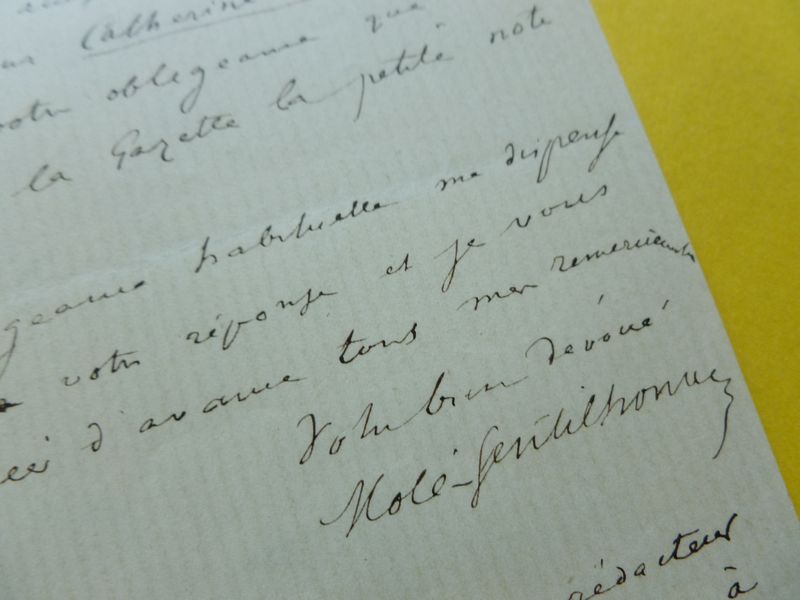 Catherine
votre obligeance que
la Gazette la petite note
geance habituelle me dispense
votre réponse et je vous
d'avance tous mes remerciements
Votre bien dévoué,
Molé-Gentilhomme
rédacteur
à